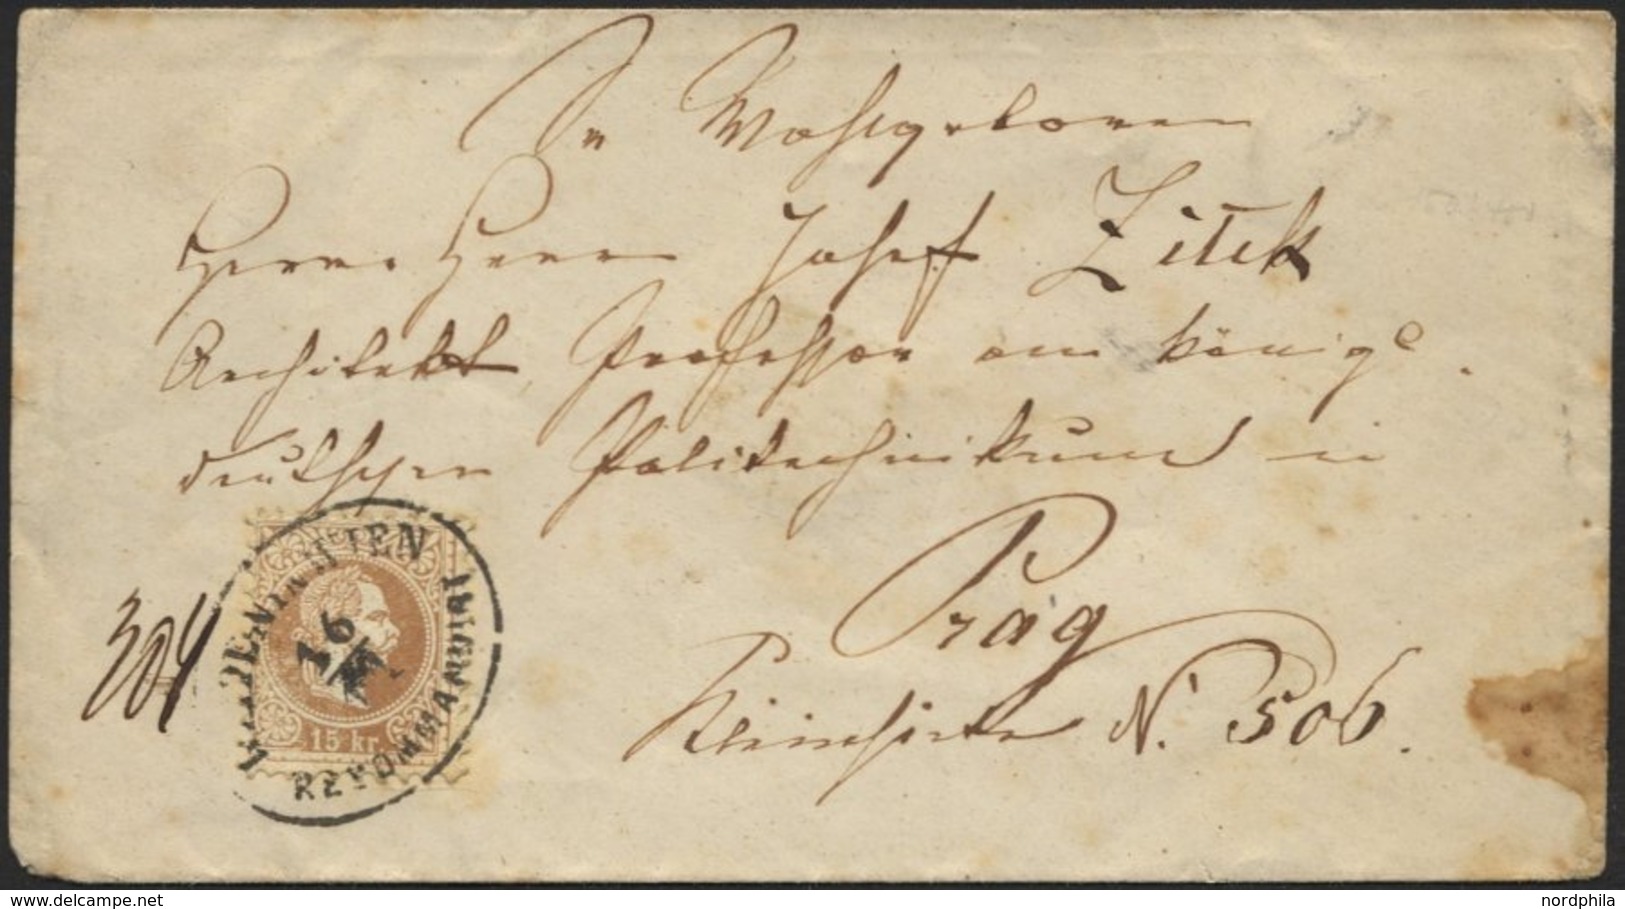 Sr Wohlgeboren
Herrn Herrn Josef Zitek
Architekt, Professor am königl.
deutschen Politechnikum in
Prag
Kleinseite N. 506.
304
RECOMMANDIRT
16
15 kr.
www.delcampe.net
nordphila